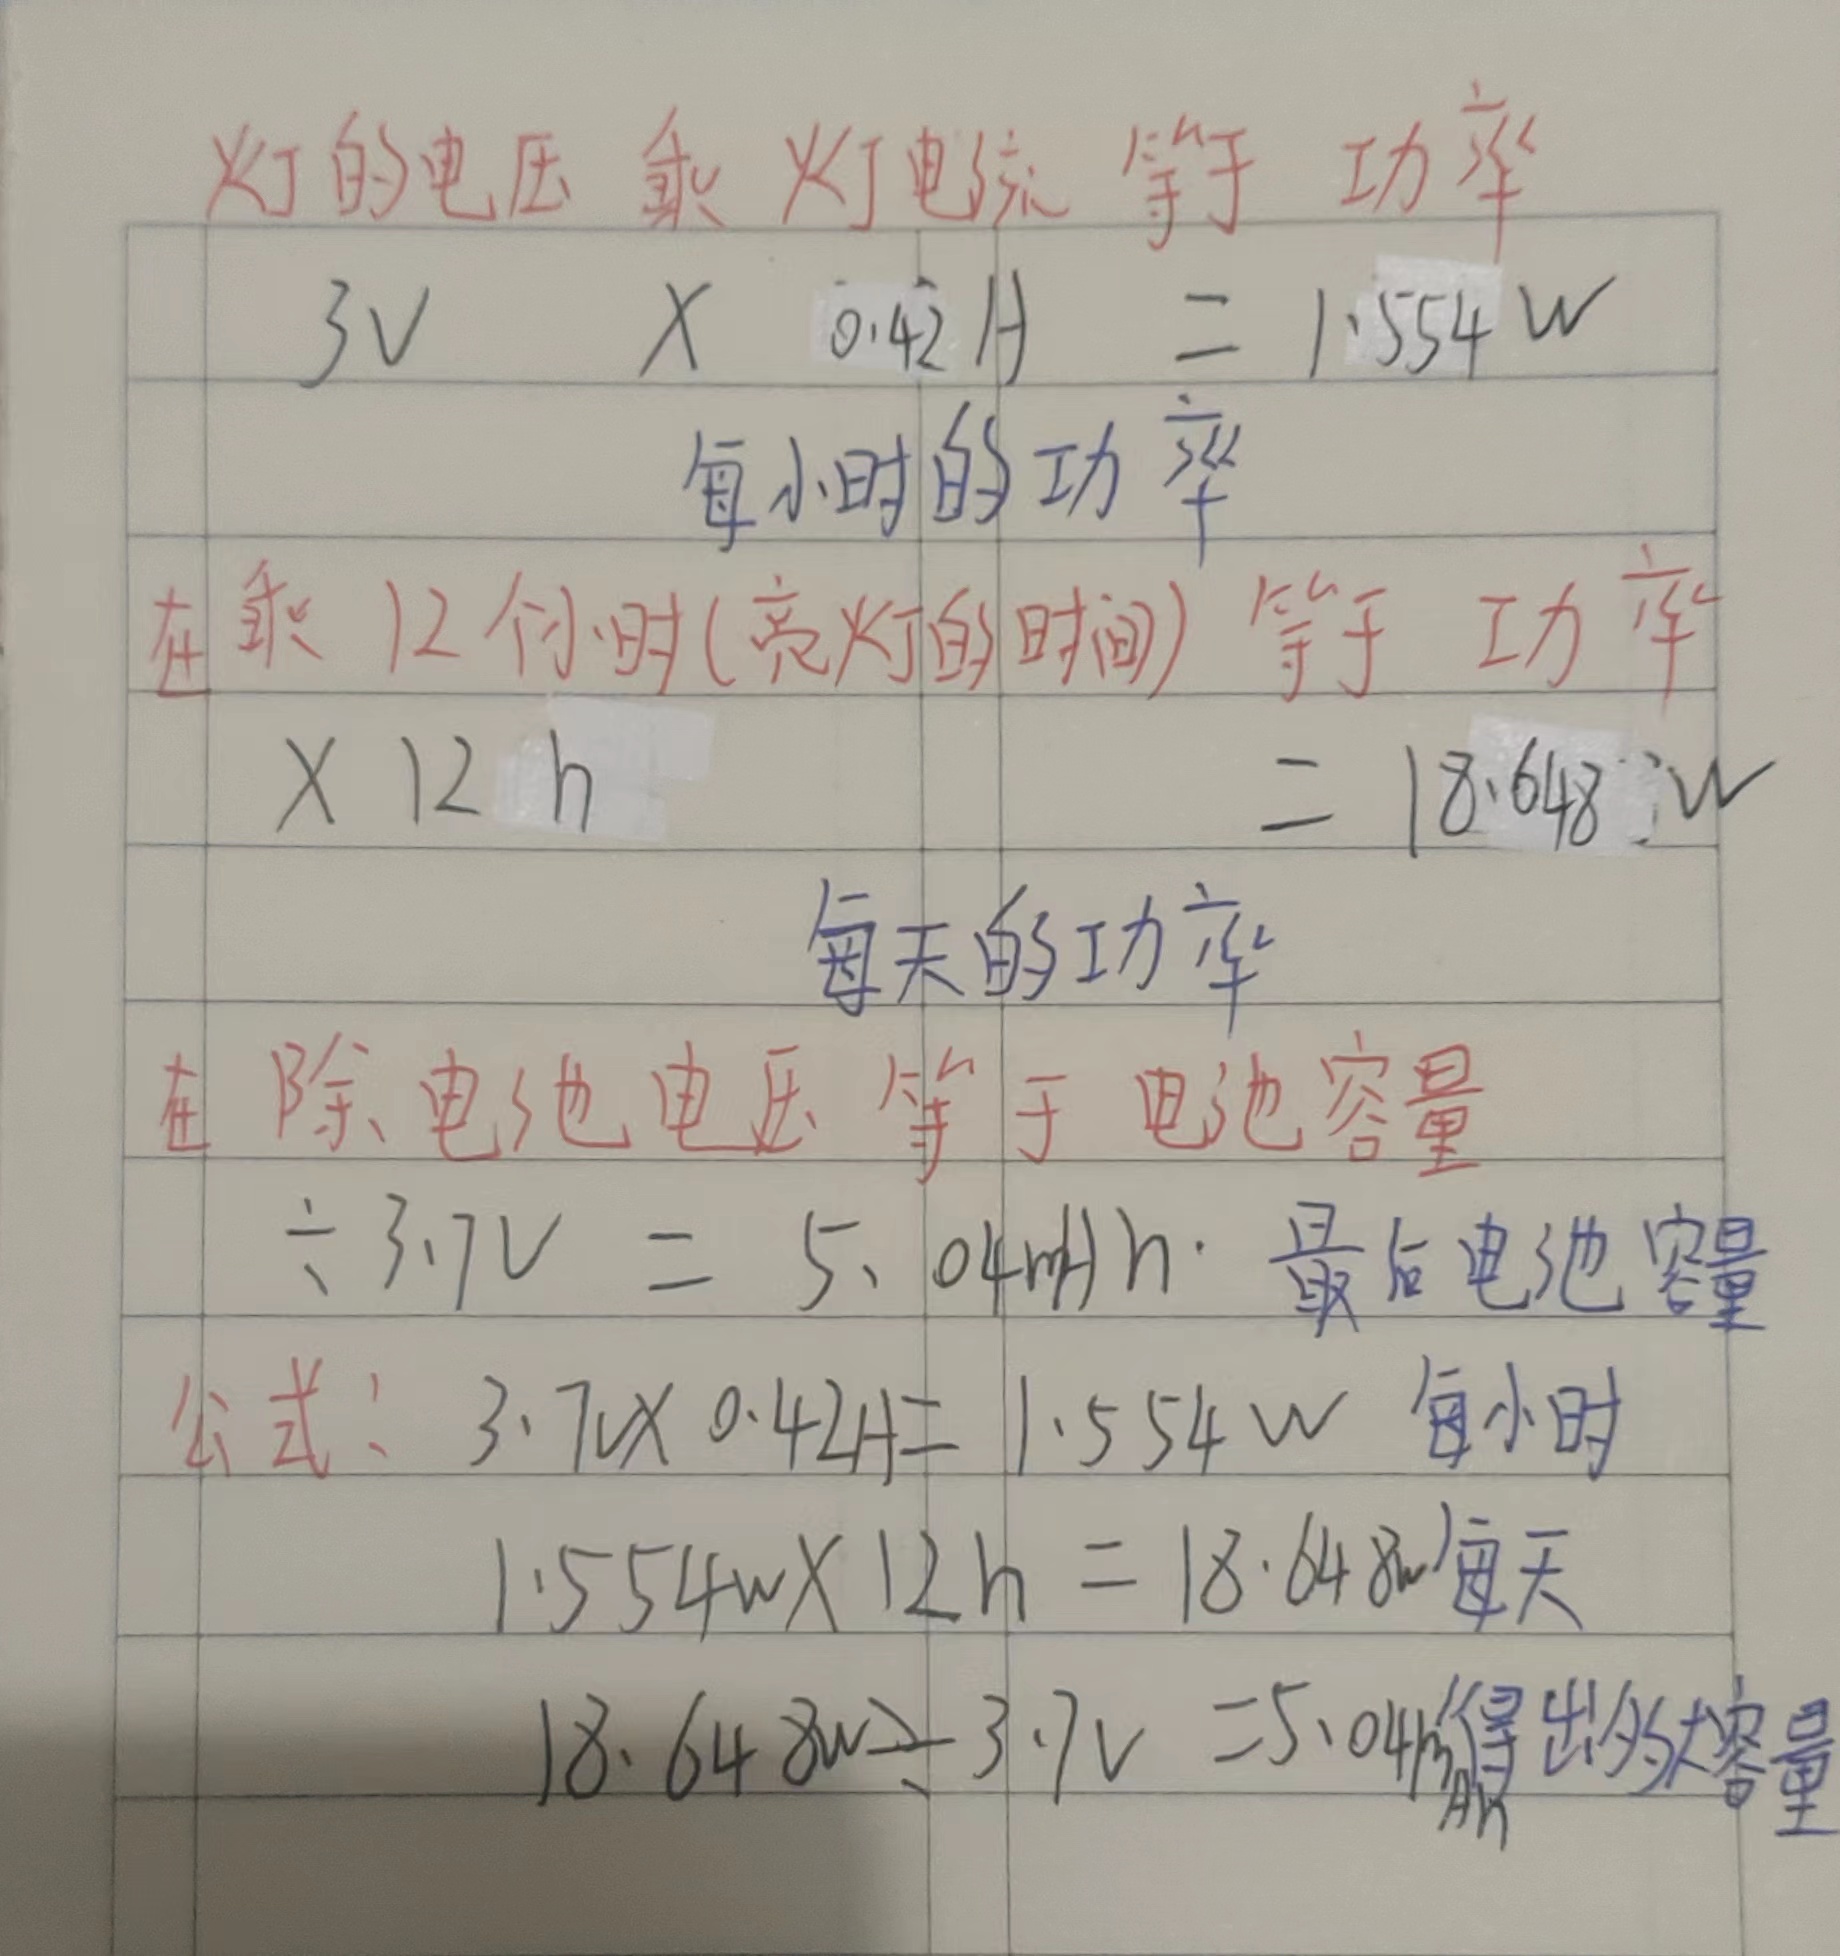 灯的电压 乘 灯电流 等于 功率
3V X 0.42A = 1.554W
每小时的功率
在乘12个小时(亮灯的时间) 等于 功率
X 12 h = 18.648 W
每天的功率
在除电池电压 等于 电池容量
÷3.7V = 5.04mAh. 最后电池容量
公式: 3.7vX 0.42A= 1.554W 每小时
1.554wX12h = 18.648w 每天
18.648w÷3.7V =5.04mAh得出多大容量